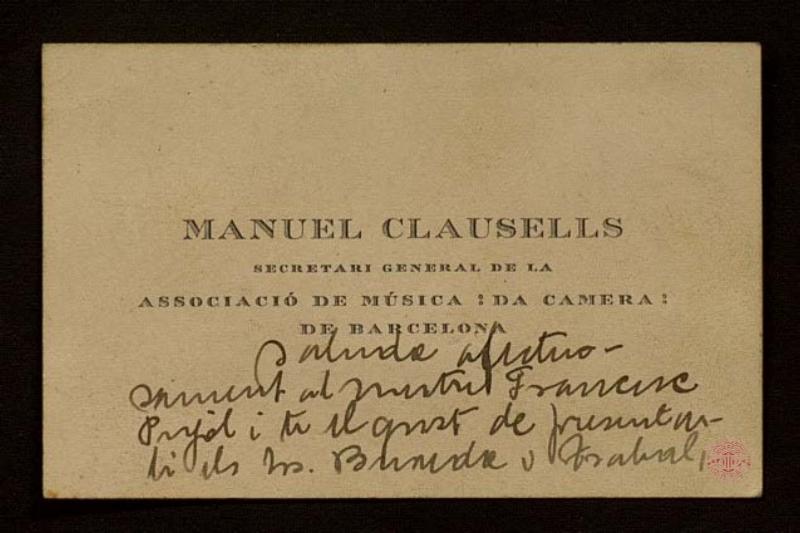 MANUEL CLAUSELLS
SECRETARI GENERAL DE LA
ASSOCIACIÓ DE MÚSICA : DA CAMERA :
DE BARCELONA
Saluda afectuo-
sament al mestre Francesc
Pujol i té el gust de presentar-
li els Srs.